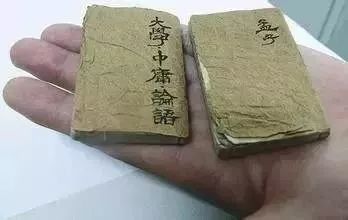 大學中庸論語
孟子